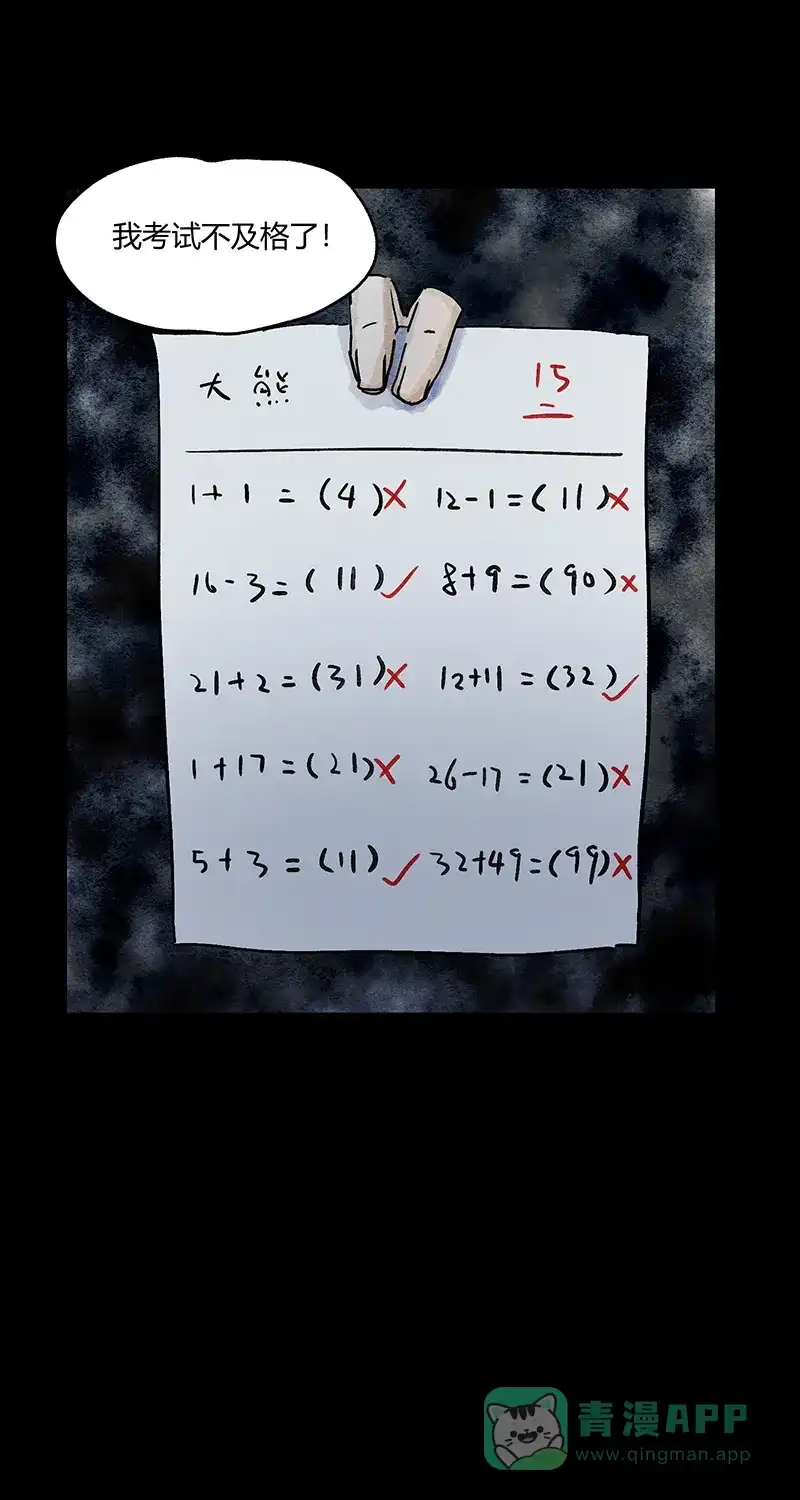 我考试不及格了!
大熊 15
1+1=(4)× 12-1=(11)×
16-3=(11)✓ 8+9=(90)×
21+2=(31)× 12+11=(32)✓
1+17=(21)× 26-17=(21)×
5+3=(11)✓ 32+49=(99)×
青漫APP
www.qingman.app